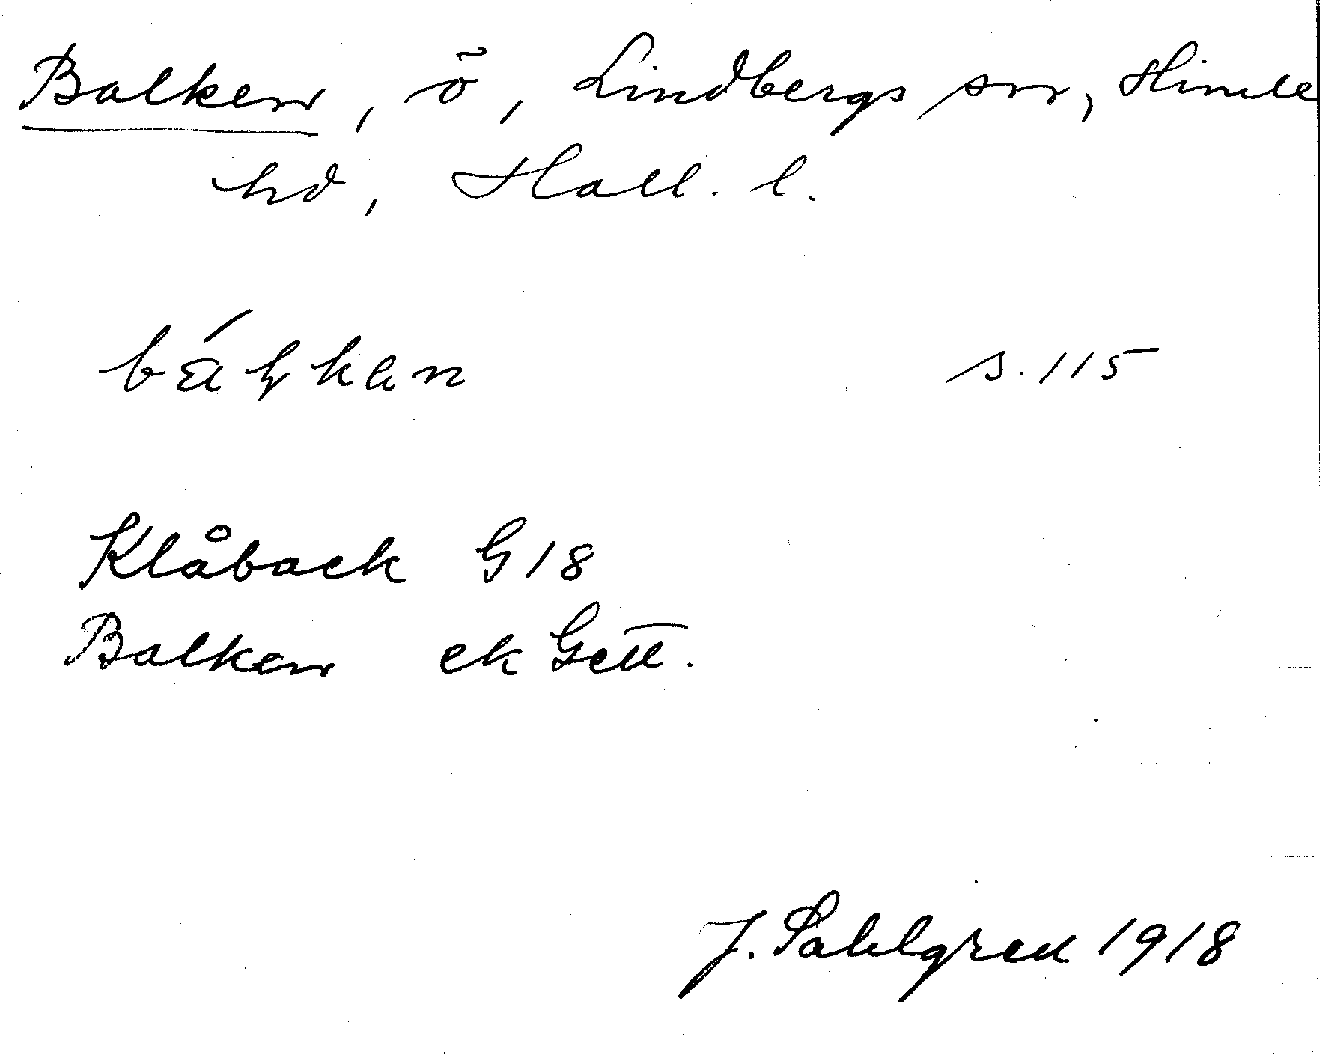 Balken, ö, Lindbergs sn, Himle
hd, Hall. l.
s. 115
Klåback G 18
Balken ek Gett.
J. Sahlgren 1918